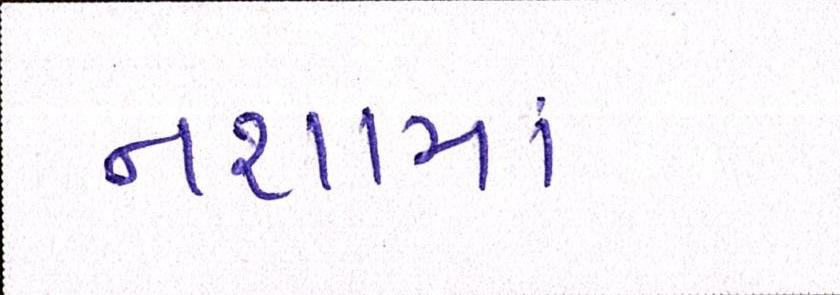 નશામાં